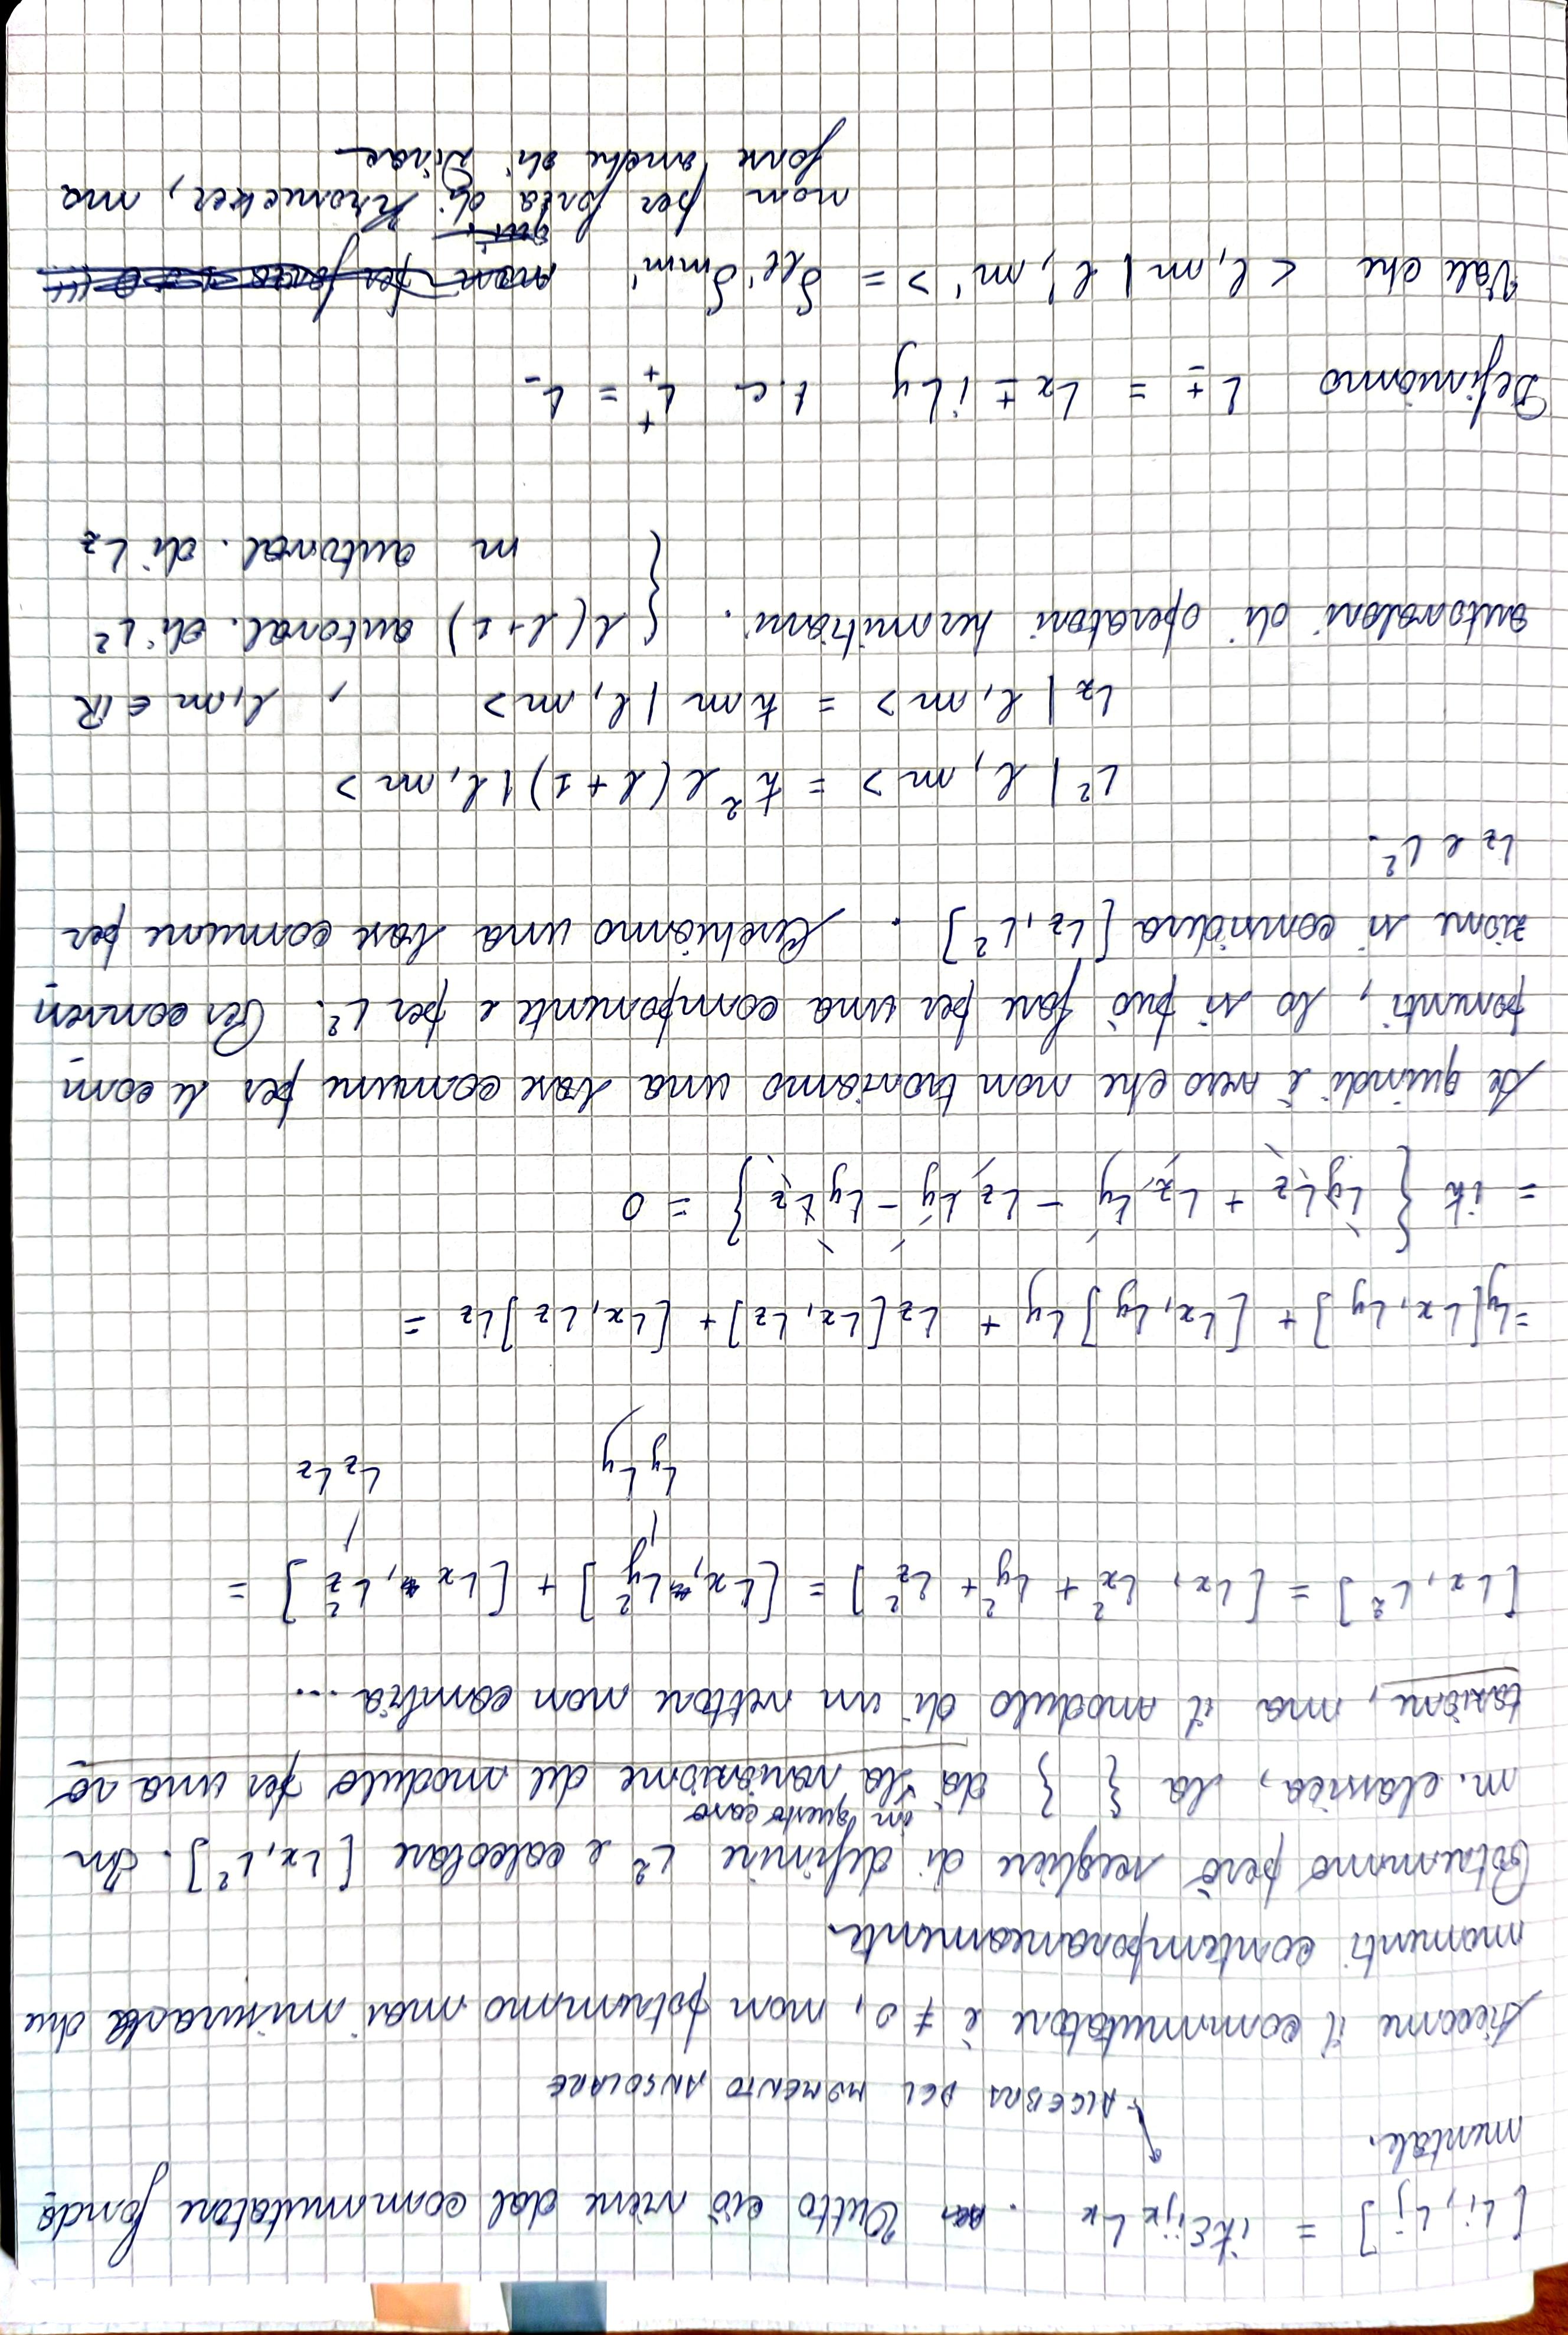 [Li, Lj] = iℏεijk Lk . Tutto ciò viene dal commutatore fonda
mentale.
ALGEBRA DEL MOMENTO ANGOLARE
Siccome il commutatore è ≠ 0, non potremmo mai misurare due
momenti contemporaneamente.
Potremmo però scegliere di definire L² e calcolare [Lx, L²]. In
in questo caso
m. classica, la { } dà la variazione del modulo per una ro
tazione, ma il modulo di un vettore non cambia...
[Lx, L²] = [Lx, Lx² + Ly² + Lz²] = [Lx, Ly²] + [Lx, Lz²] =
LyLy LzLz
= Ly[Lx, Ly] + [Lx, Ly]Ly + Lz[Lx, Lz] + [Lx, Lz]Lz =
= iℏ { LyLz + LzLy - LzLy - LyLz } = 0
Se quindi è vero che non troviamo una base comune per le com
ponenti, lo si può fare per una componente e per L². Per conven
zione si considera [Lz, L²] . Cerchiamo una base comune per
Lz e L².
L² | l, m > = ℏ² l(l+1) | l, m >
Lz | l, m > = ℏm | l, m > , l, m ∈ ℝ
autovalori di operatori hermitiani. { l(l+1) autoval. di L²
m autoval. di Lz
Definiamo L± = Lx ± iLy t.c. L₊⁺ = L₋
Vale che < l, m | l', m' > = δll' δmm'
non per forza di Kronecker, ma
forse anche di Dirac